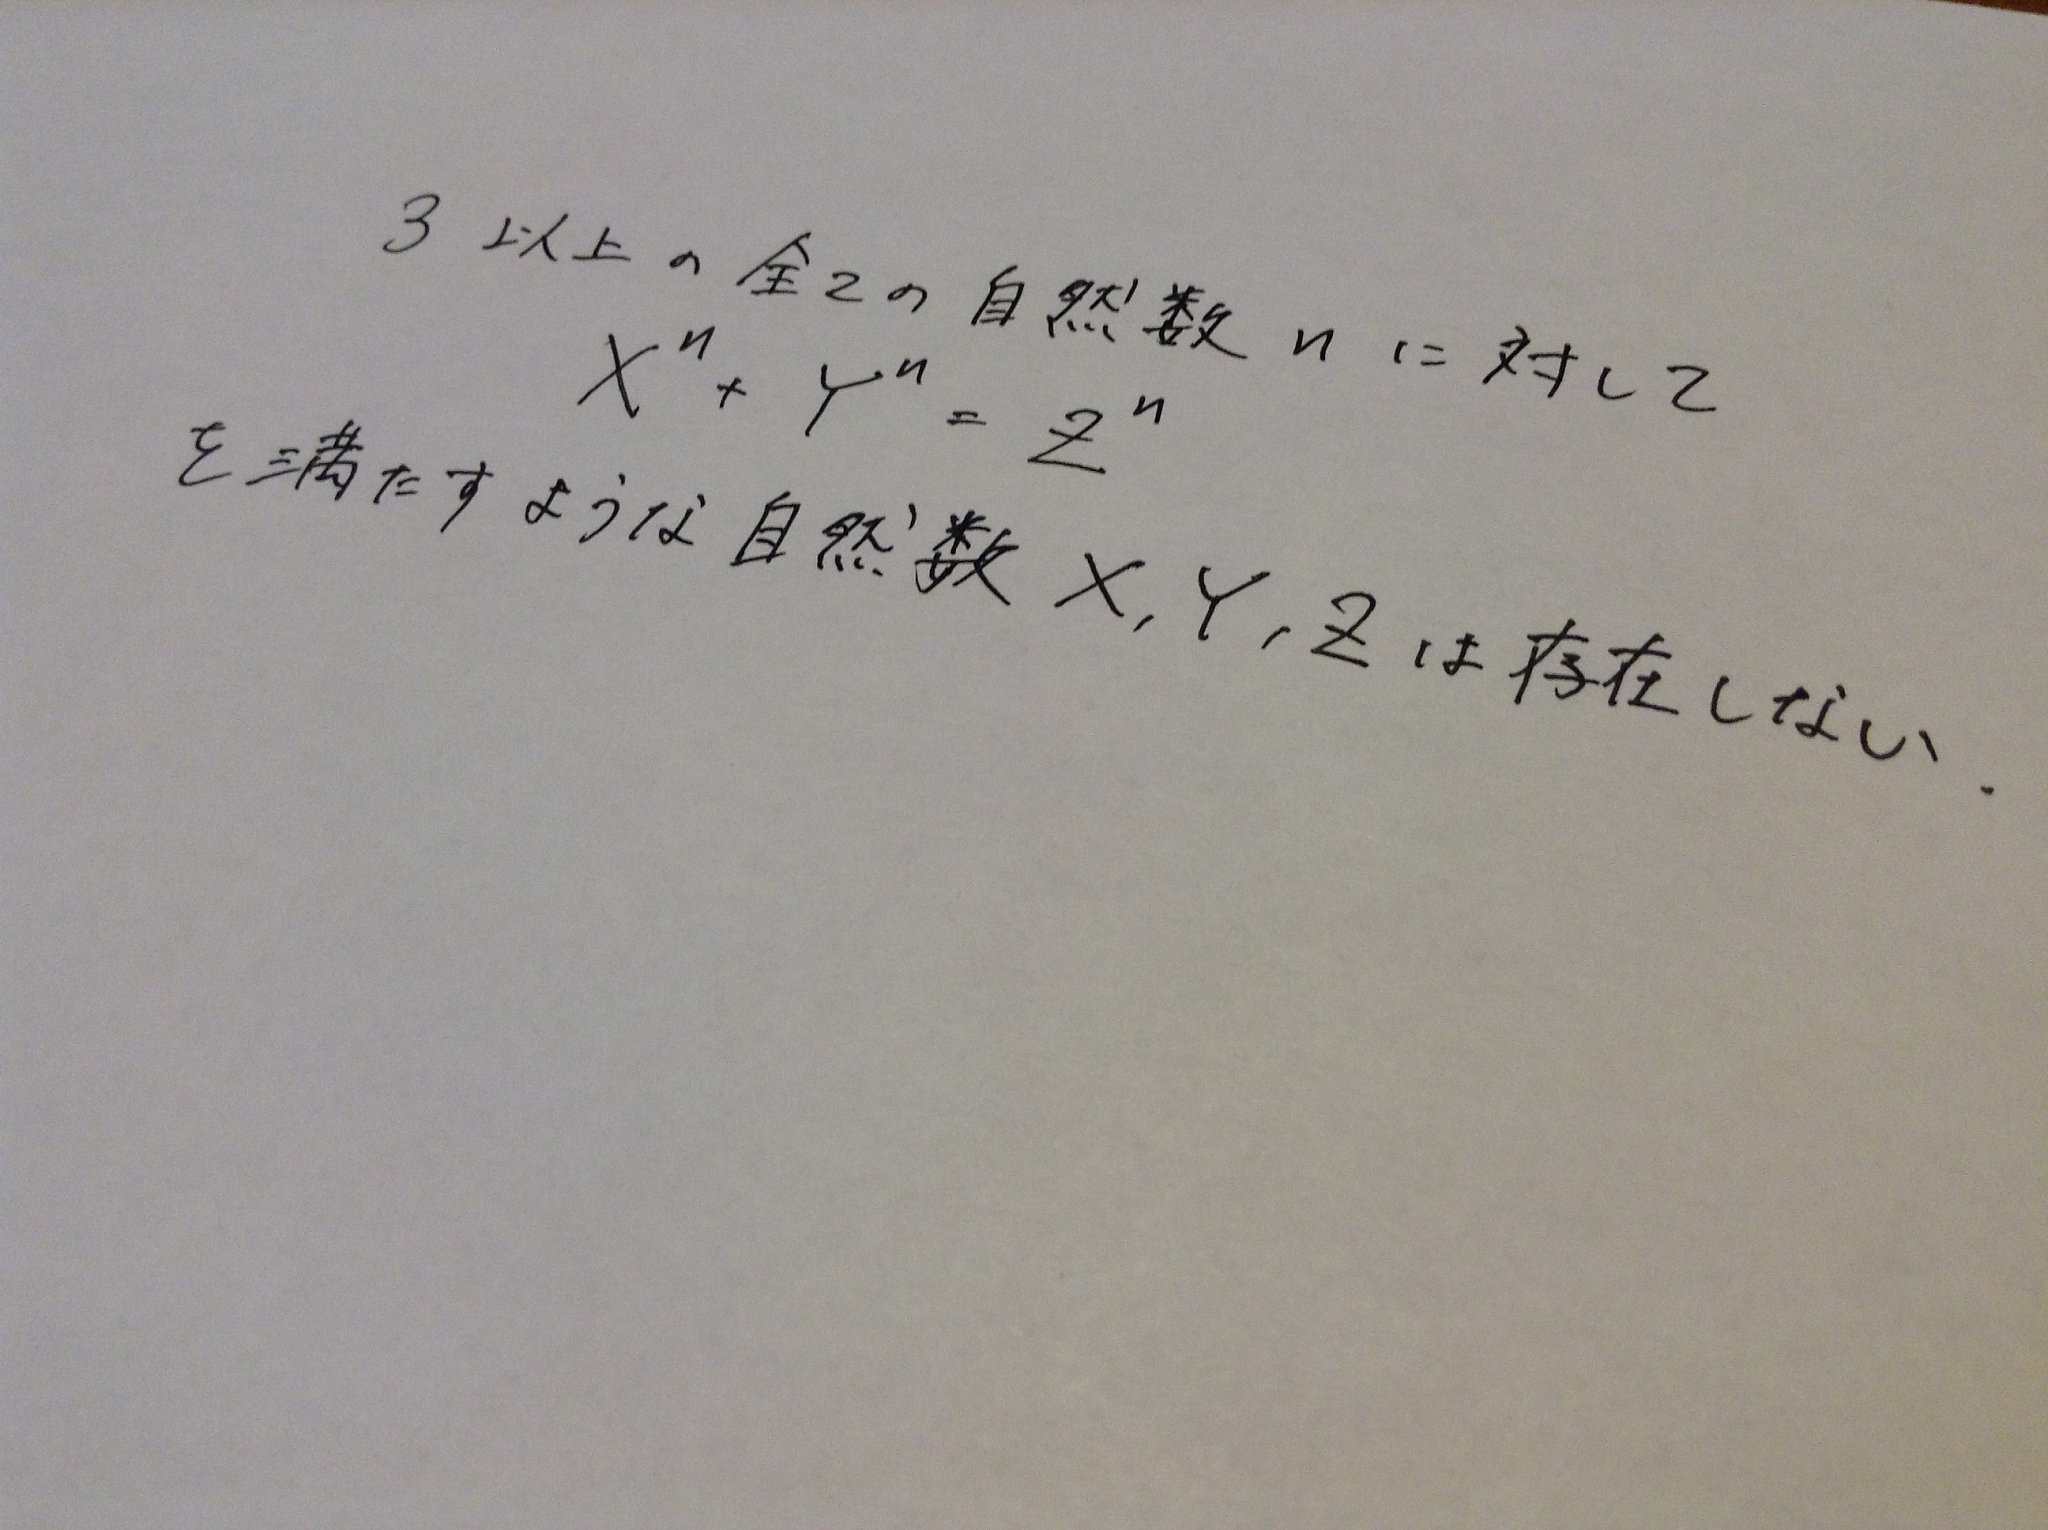 3 以上の全ての自然数 n に対して
Xⁿ + Yⁿ = Zⁿ
を満たすような自然数 X, Y, Z は存在しない.